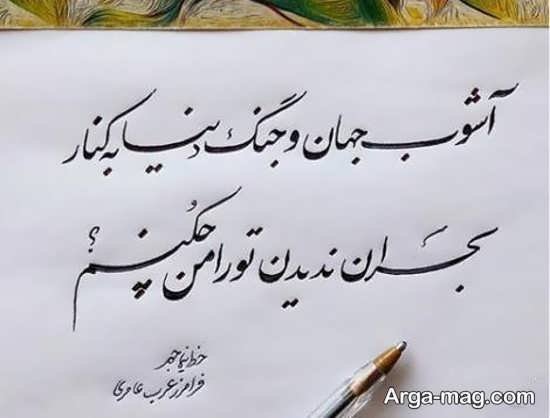 آشوب جهان و جنگ دنیا به کنار
بحران ندیدن تو را من چکنم؟
فرامرز عرب عامری
Arga-mag.com